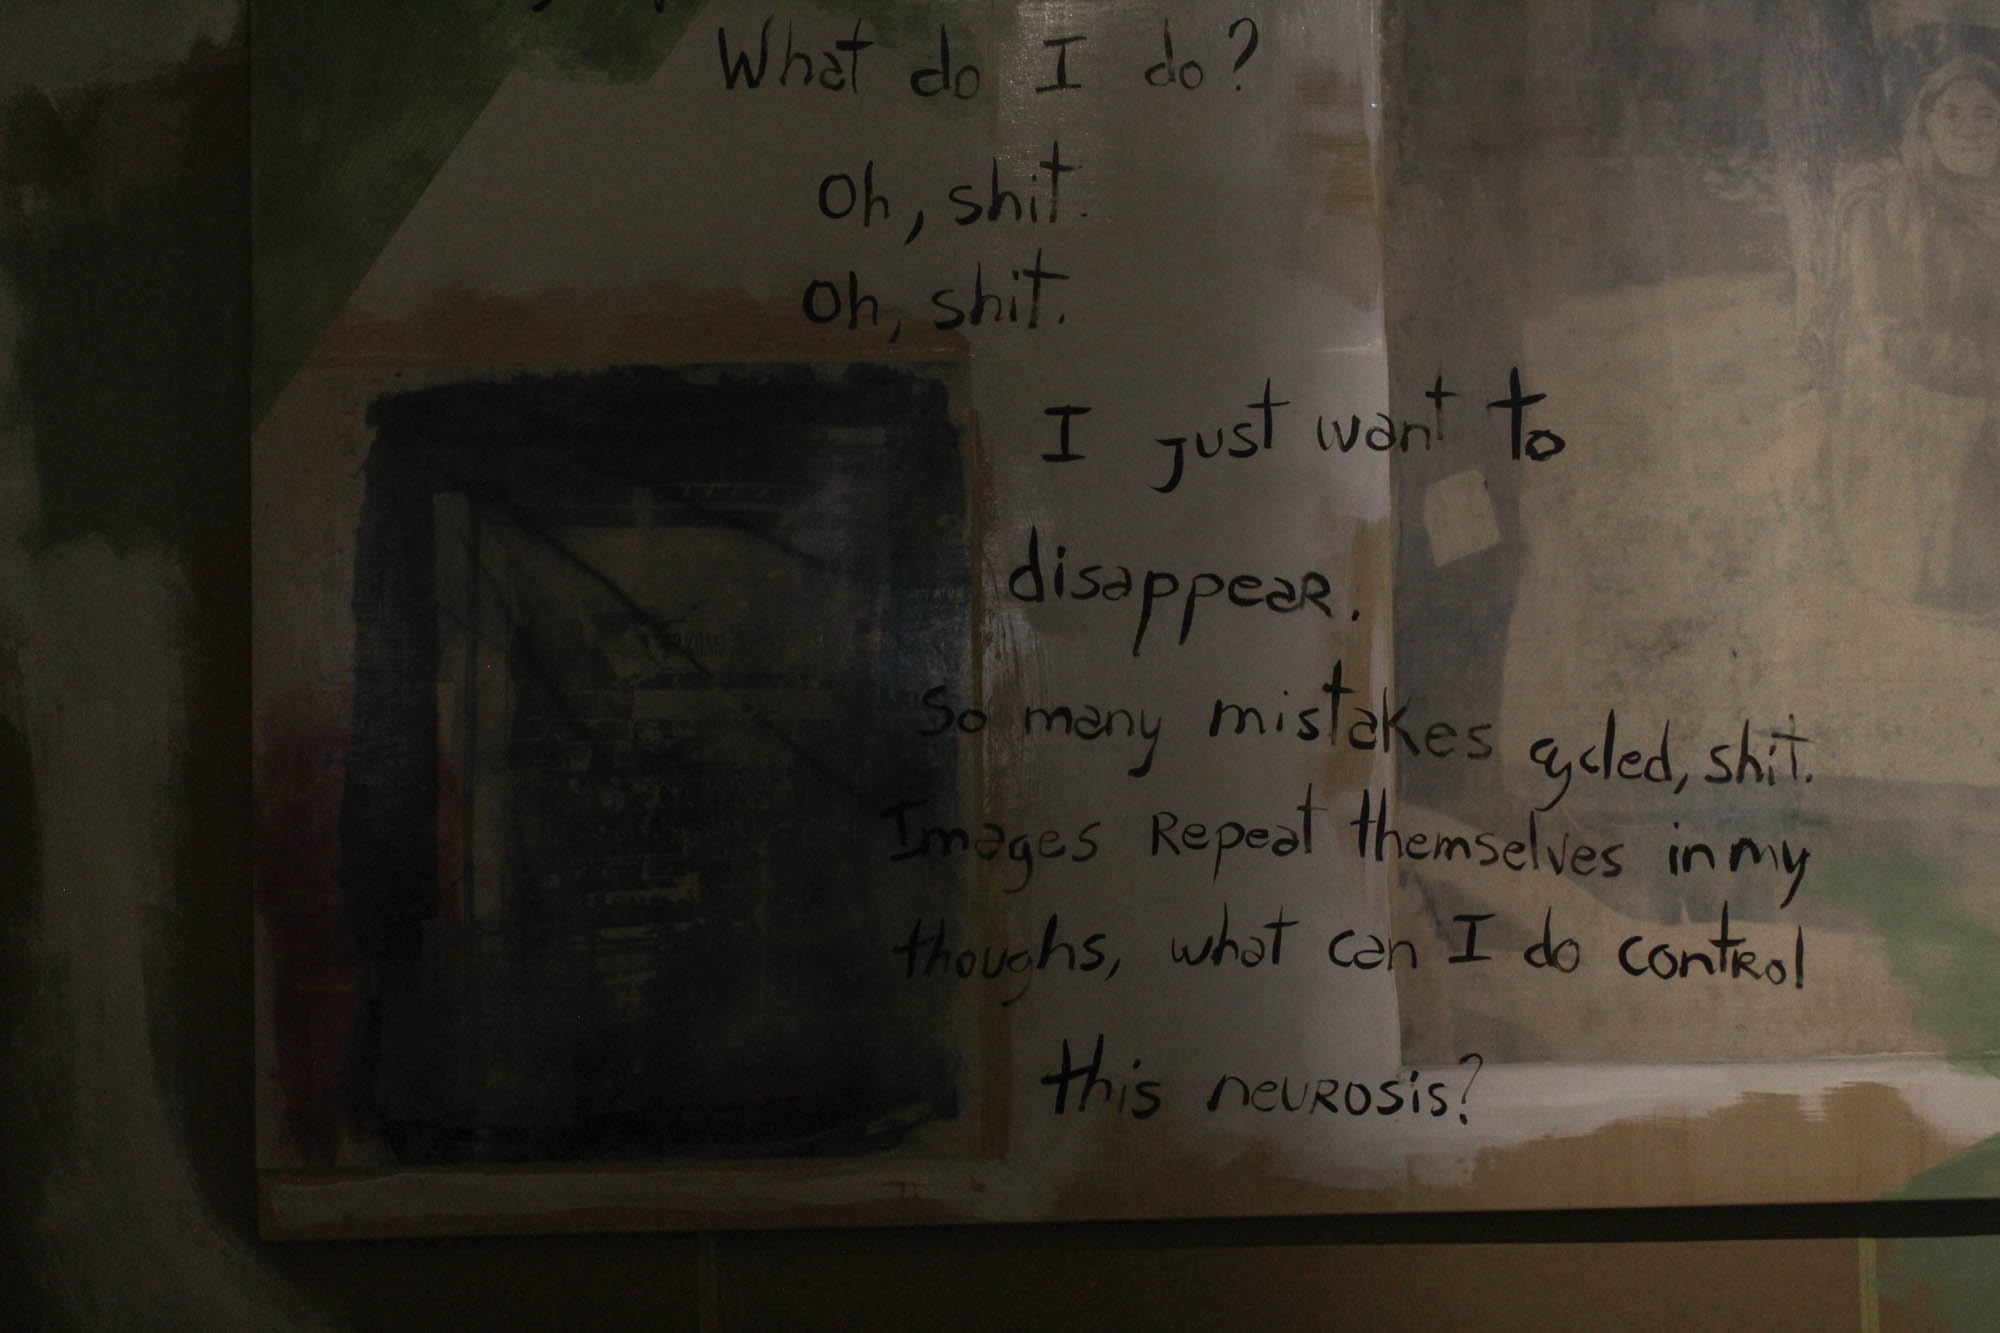 What do I do?
Oh, shit.
Oh, shit.
I just want to
disappear.
So many mistakes cycled, shit.
Images Repeat themselves in my
thoughs, what can I do control
this neurosis?